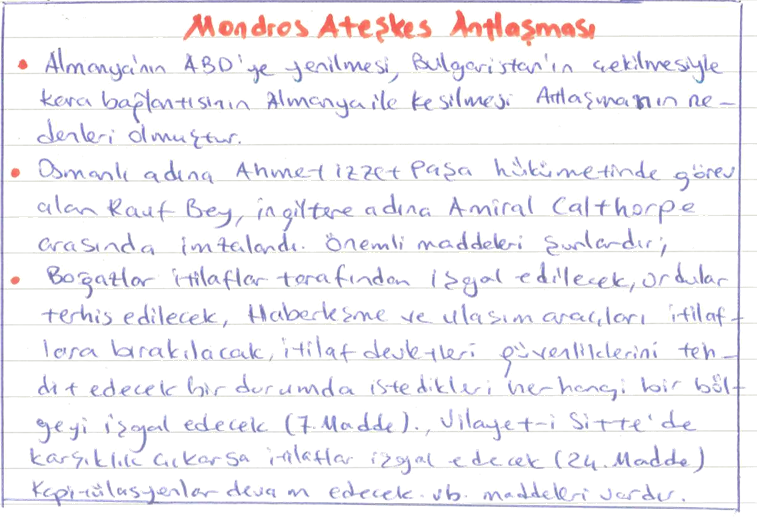 Mondros Ateşkes Antlaşması
• Almanya'nın ABD'ye yenilmesi, Bulgaristan'ın çekilmesiyle
kara bağlantısının Almanya ile kesilmesi Antlaşmanın ne-
denleri olmuştur.
• Osmanlı adına Ahmet izzet Paşa hükümetinde görev
alan Rauf Bey, ingiltere adına Amiral Calthorpe
arasında imzalandı. Önemli maddeleri şunlardır;
• Boğazlar itilaflar tarafından işgal edilecek, ordular
terhis edilecek, Haberleşme ve ulaşım araçları itilaf-
lara bırakılacak, itilaf devletleri güvenliklerini teh-
dit edecek bir durumda istedikleri herhangi bir böl-
geyi işgal edecek (7. Madde)., Vilayet-i Sitte'de
karşıklık çıkarsa itilaflar işgal edecek (24. Madde)
Kapitülasyonlar devam edecek. vb. maddeleri vardır.